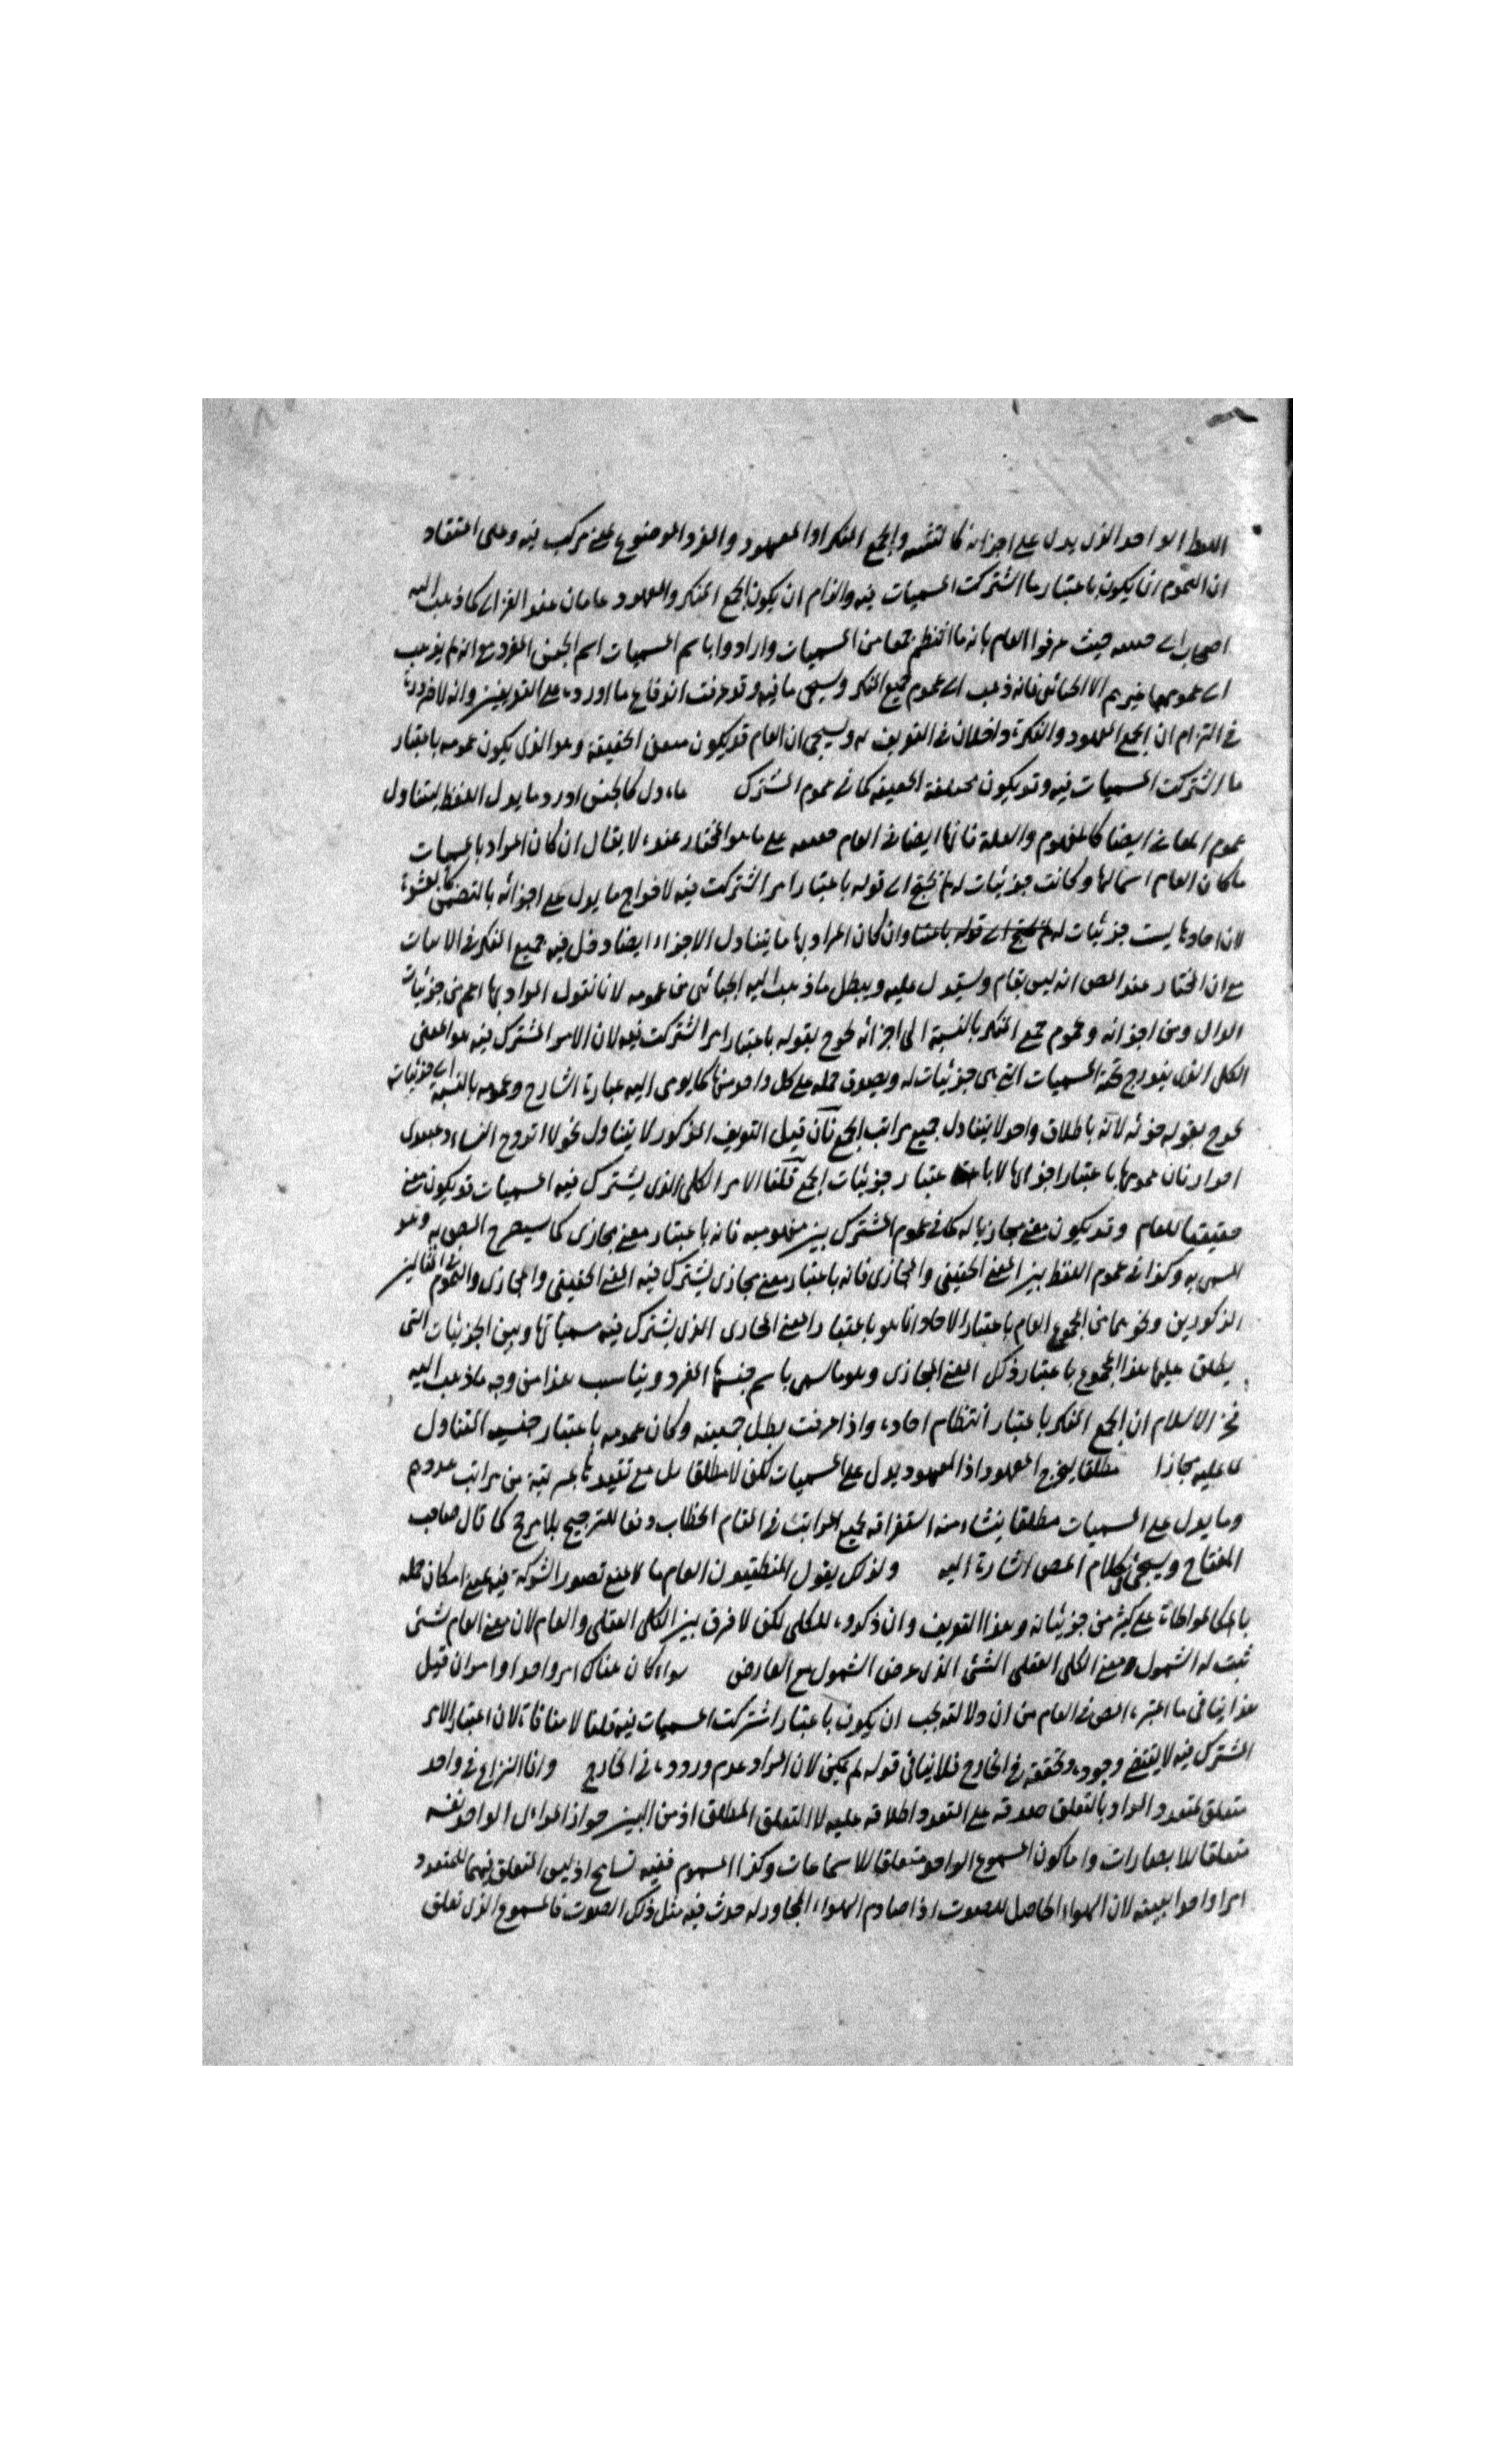 اللفظ الواحد الذى يدل على اجزائه كالتثنية والجمع المنكر او المعهود والفرد الموضوع لمعنى مركب فيه وعلى اعتقاد
ان العموم انما يكون باعتبار ما اشتركت المسميات فيه والتزام ان يكون الجمع المنكر والمعهود عامان عند الغزالى كما ذهب اليه
اصحاب حيث عرفوا العام بانه ما انتظم جمعا من المسميات وارادوا باسم المسميات اسم الجنس المفرد مع انه لم يذهب
الى عمومهما غيرهم الا الجبائى فانه ذهب الى عموم جميع المنكر وسيجى ما فيه وقد عرفت اندفاع ما اورده على التعريفين وانه لا ضرورة
فى التزام ان الجمع المعهود والنكرة داخلان فى التعريف له وسيجى ان العام قد يكون معنى الحقيقة وهو الذى يكون عمومه باعتبار
ما اشتركت المسميات فيه وقد يكون الحقيقة كما فى عموم المشترك ماء دل كالجنس اورد ما يدل اللفظ ليتناول
عموم المعانى ايضا كالمفهوم والعلة فانها ايضا فى العام على ما هو المختار عنده لا يقال ان كان المراد بالمسميات
ما كان العام اسما لها وكانت جزئيات له لم يحتج الى قوله باعتبار امر اشتركت فيه لاخراج ما يدل على اجزائه بالتضمن كالعشرة
لان احادها ليست جزئيات له وان كان المراد بها ما يتناول الاجزاء ايضا دخل فيه جميع المنكر فى الاثبات
مع ان المختار عند المص انه ليس بعام وسيتدل عليه ويبطل ما ذهب اليه الجبائى من عمومه لانا نقول المراد بها اعم من جزئيات
الدال ومن اجزائه وعموم جمع المنكر بالنسبة الى اجزائه يخرج بقوله باعتبار امر اشتركت فيه لان الامر المشترك فيه هو المعنى
الكلى الذى يندرج تحته المسميات التى هى جزئيات له ويصدق حمله على كل واحد منها كما يومى اليه عبارة الشارح وعمومه بالنسبة الى جزئياته
يخرج بقوله ضربة لانه باطلاق واحد لا يتناول جميع مراتب الجمع فان قيل التعريف المذكور لا يتناول نحو لا اتزوج النساء وعبيدى
احرار فان عمومها باعتبار اجزائها لا باعتبار جزئيات الجمع قلنا الامر الكلى الذى يشترك فيه المسميات قد يكون معنى
حقيقيا للعام وقد يكون معنى مجازيا له كما فى عموم المشترك بين مفهوميه فانه باعتبار معنى مجازى كما سيصرح المص به وهو
المسمى به وكذا فى عموم اللفظ بين المعنى الحقيقى والمجازى فانه باعتبار معنى مجازى يشترك فيه المعنى الحقيقى والمجازى والعموم فى المثالين
المذكورين ونحوهما من المجموع العام باعتبار الاحاد انما هو باعتبار المعنى المجازى الذى يشترك فيه مسمياتها وبين الجزئيات التى
يطلق عليها هذا المجموع باعتبار ذلك المعنى المجازى وهو ما سمى باسم جنسها المفرد ويناسب هذا من وجه ما ذهب اليه
فخر الاسلام ان الجمع المنكر باعتبار انتظام احاده واذا عرفت بطل جمعيته وكان عمومه باعتبار جنسيه التناول
له عليه مجازا مطلقا ليخرج المعهود اذ المعهود يدل على المسميات لكن لا مطلقا بل مع تقييدها بمرتبة من مراتب
وما يدل على المسميات مطلقا ينشاء منه استغراقه لجميع المراتب فى المقام الخطابى دفعا للترجيح بلا مرجح كما قال صاحب
المفتاح وسيجى فى كلام المص اشارة اليه ولذلك يقول المنطقيون العام ما لا يمنع تصور الشركة فيه بمعنى امكان حمله
بالمواطاة على كثير من جزئياته وهذا التعريف وان ذكروه للكلى لكن لا فرق بين الكلى العقلى والعام لان معنى العام شئ
ثبت له الشمول ومعنى الكلى العقلى الشئ الذى عرض الشمول مع العارض سواء كان هناك امر واحد او امر ان قيل
هذا ينافى ما اعتبره المص فى العام من ان دلالته يجب ان يكون باعتبار اشتركت المسميات فيه قلنا لا منافاة لان اعتبار الامر
المشترك فيه لا يقتضى وجوده وتحققه فى الخارج فلا ينافى قوله لم يكن لان المراد عدم وروده فى الخارج وانما النزاع فى واحد
متعلق بمتعدد المراد بالتعلق صدقه على المتعدد اطلاقه عليه لا التعلق المطلق اذ من البين جواز المرائ الواحد نفسه
متعلقا للابصارات واما كون المسموع الواحد متعلقا للاسماعات وكذا المشموم ففيه تسامح اذ ليس التعلق فيهما المتعدد
امرا واحدا بعينه لان الهواء الحاصل للصوت اذا صادم الهواء المجاور له حدث فيه مثل ذلك الصوت فالمسموع الذى تعلق